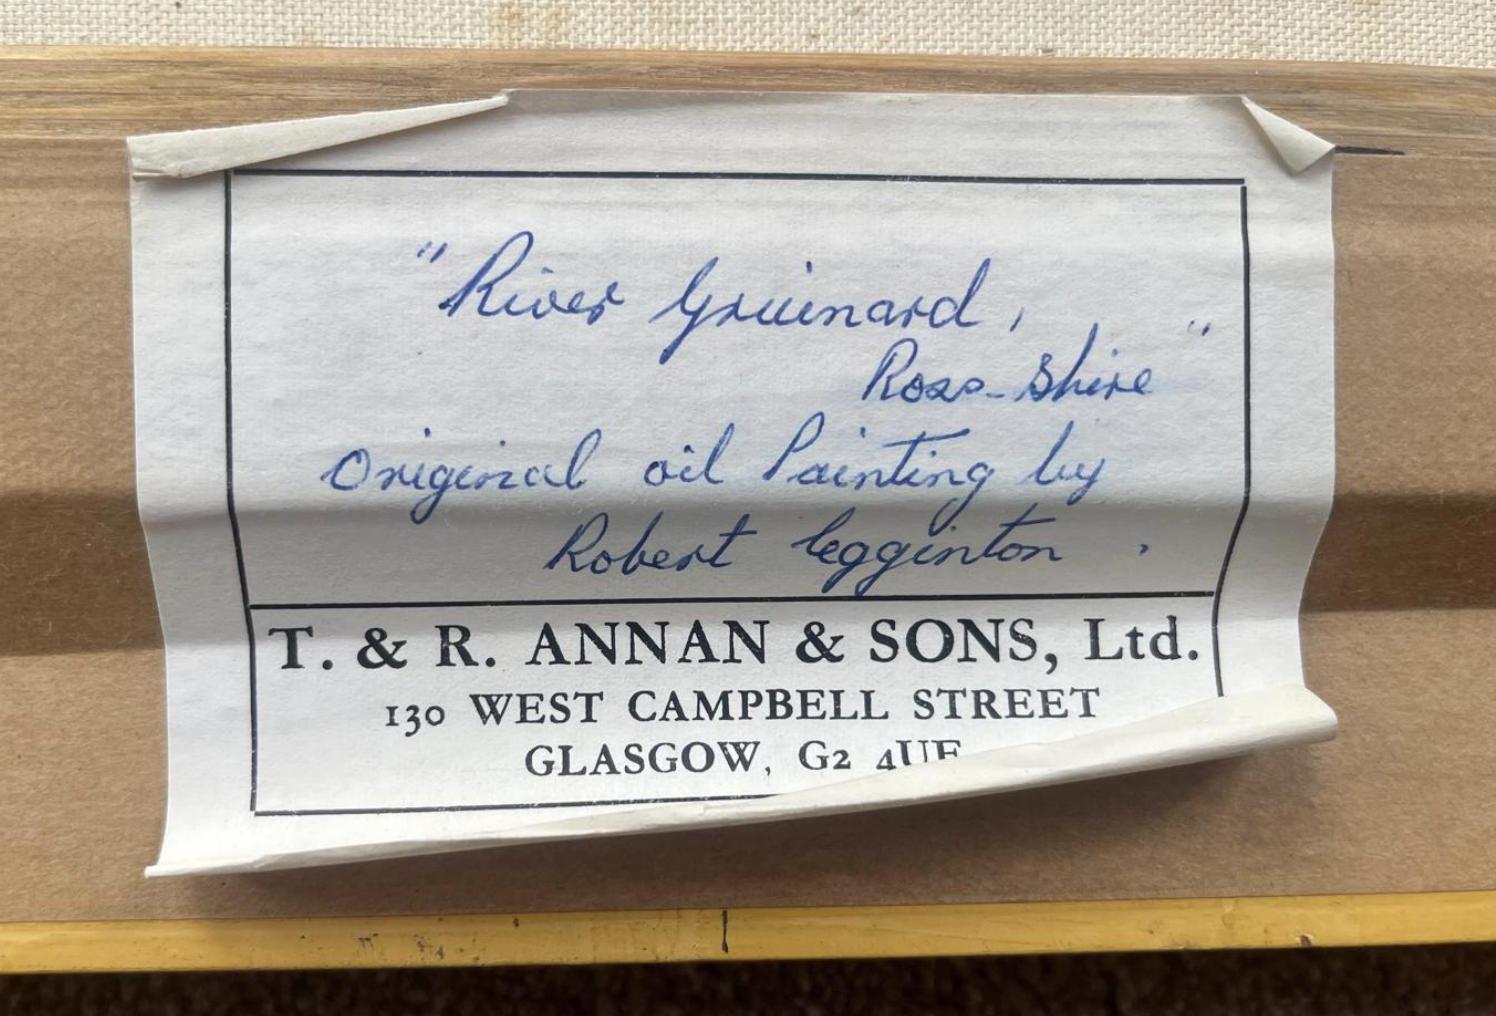 "River Gruinard,
Ross-Shire"
Original oil Painting by
Robert Egginton.
T. & R. ANNAN & SONS, Ltd.
130 WEST CAMPBELL STREET
GLASGOW, G2